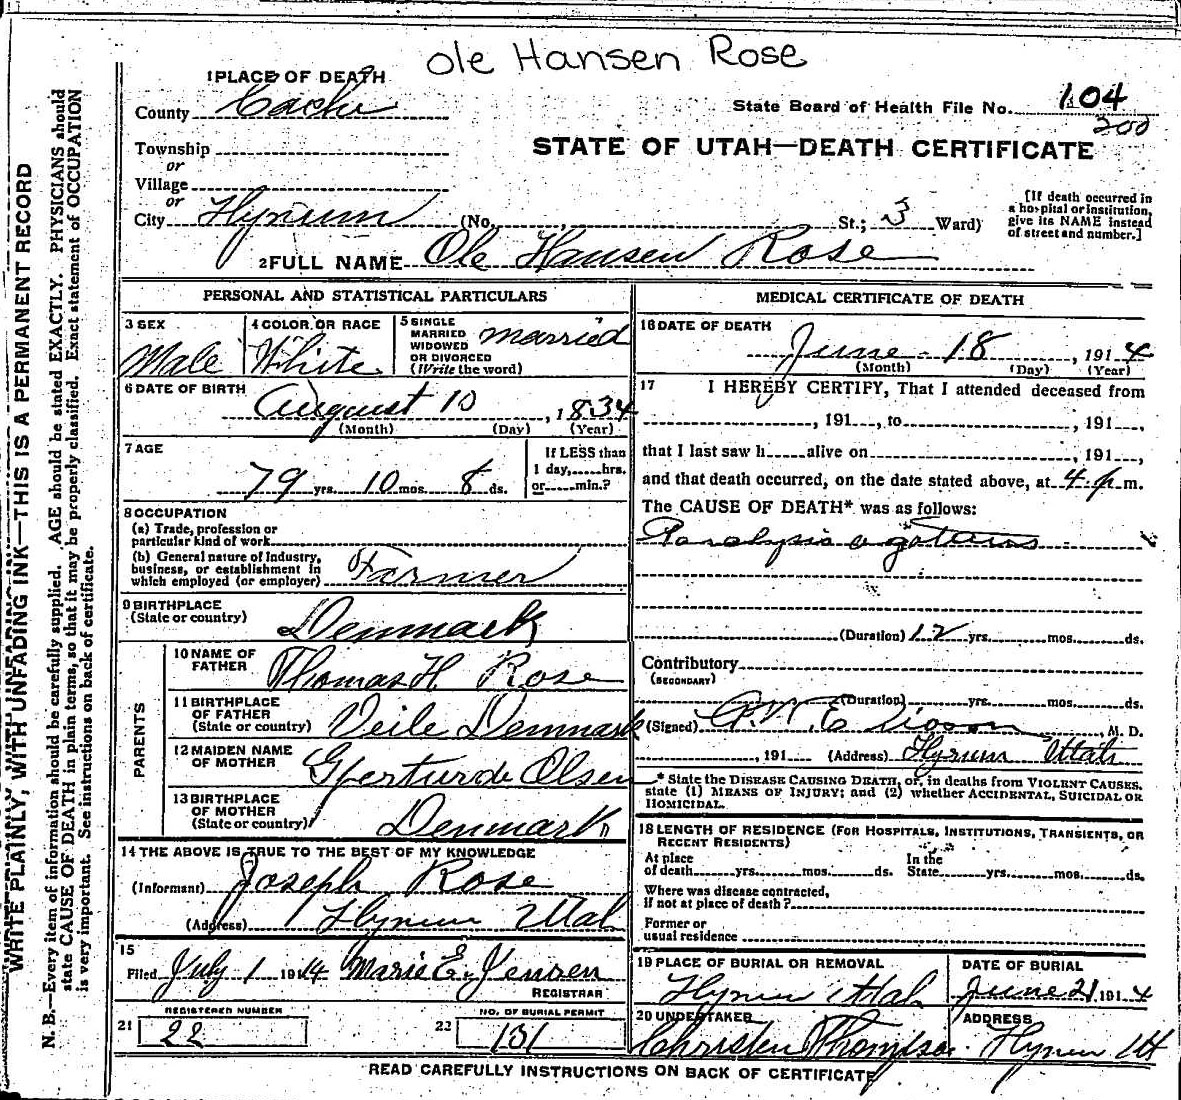 Ole Hansen Rose
1 PLACE OF DEATH
County Cache
State Board of Health File No. 104
200
Township
or
Village
or
City Hyrum (No. St.; 3 Ward)
STATE OF UTAH—DEATH CERTIFICATE
[If death occurred in
a hospital or institution,
give its NAME instead
of street and number.]
2 FULL NAME Ole Hansen Rose
PERSONAL AND STATISTICAL PARTICULARS
3 SEX
Male
4 COLOR OR RACE
White
5 SINGLE
MARRIED
WIDOWED
OR DIVORCED
(Write the word)
married
6 DATE OF BIRTH
August 10, 1834
(Month) (Day) (Year)
7 AGE
79 yrs. 10 mos. 8 ds.
If LESS than
1 day, hrs.
or min.?
8 OCCUPATION
(a) Trade, profession or
particular kind of work
(b) General nature of Industry,
business, or establishment in
which employed (or employer) Farmer
9 BIRTHPLACE
(State or country) Denmark
PARENTS
10 NAME OF
FATHER Thomas H. Rose
11 BIRTHPLACE
OF FATHER
(State or country) Veile Denmark
12 MAIDEN NAME
OF MOTHER Olsen
13 BIRTHPLACE
OF MOTHER
(State or country) Denmark
14 THE ABOVE IS TRUE TO THE BEST OF MY KNOWLEDGE
(Informant) Joseph Rose
(Address) Hyrum Utah
15
Filed July 1 1914 Marie E. Jensen
REGISTRAR
REGISTERED NUMBER
21 22
NO. OF BURIAL PERMIT
22 131
MEDICAL CERTIFICATE OF DEATH
16 DATE OF DEATH
June 18, 1914
(Month) (Day) (Year)
17 I HEREBY CERTIFY, That I attended deceased from
, 191 , to , 191 ,
that I last saw h alive on , 191 ,
and that death occurred, on the date stated above, at 4 p m.
The CAUSE OF DEATH* was as follows:
Paralysis agitans
(Duration) 12 yrs. mos. ds.
Contributory
(SECONDARY)
(Duration) yrs. mos. ds.
(Signed) M. D.
, 191 (Address) Hyrum Utah
* State the DISEASE CAUSING DEATH, or, in deaths from VIOLENT CAUSES,
state (1) MEANS OF INJURY; and (2) whether ACCIDENTAL, SUICIDAL OR
HOMICIDAL.
18 LENGTH OF RESIDENCE (FOR HOSPITALS, INSTITUTIONS, TRANSIENTS, OR
RECENT RESIDENTS)
At place
of death yrs. mos. ds.
In the
State yrs. mos. ds.
Where was disease contracted,
if not at place of death?
Former or
usual residence
19 PLACE OF BURIAL OR REMOVAL
Hyrum Utah
DATE OF BURIAL
June 21 1914
20 UNDERTAKER
Christen Thompson
ADDRESS
Hyrum Ut
READ CAREFULLY INSTRUCTIONS ON BACK OF CERTIFICATE
WRITE PLAINLY, WITH UNFADING INK—THIS IS A PERMANENT RECORD
N. B.—Every item of information should be carefully supplied. AGE should be stated EXACTLY. PHYSICIANS should
state CAUSE OF DEATH in plain terms, so that it may be properly classified. Exact statement of OCCUPATION
is very important. See instructions on back of certificate.